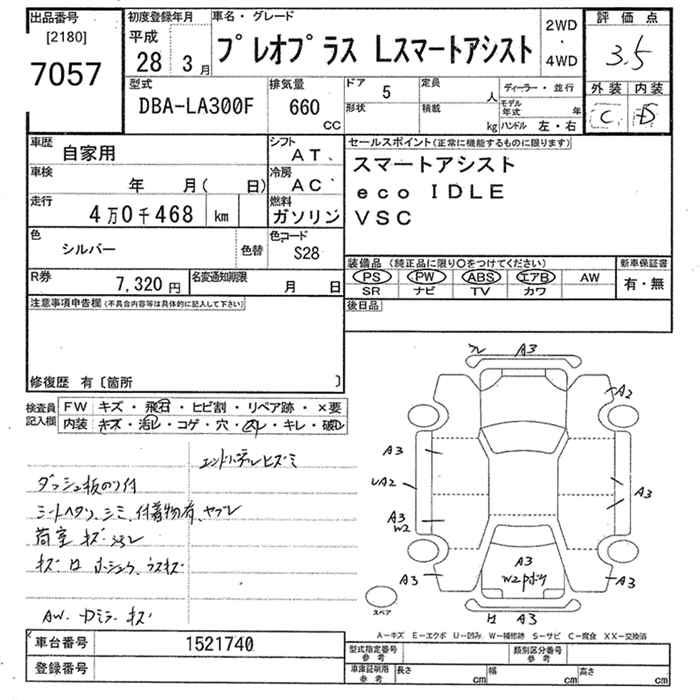 出品番号
[2180]
7057
初度登録年月
平成
28 3月
車名・グレード
プレオプラス Lスマートアシスト
2WD
・
4WD
評価点
3.5
外装 内装
C D
型式
DBA-LA300F
排気量
660
CC
ドア
5
形状
定員
人
積載
kg
ディーラー・並行
モデル年式 年
ハンドル 左・右
車歴
自家用
シフト
AT
車検
年 月( 日)
冷房
AC
走行
4万0千468 km
燃料
ガソリン
色
シルバー
色替
色コード
S28
R券
7,320円
名変通知期限
月 日
セールスポイント(正常に機能するものに限ります)
スマートアシスト
eco IDLE
VSC
装備品(純正品に限り〇をつけてください)
PS PW ABS エアB AW
SR ナビ TV カワ
新車保証書
有・無
後日品
注意事項申告欄(不具合内容等は具体的に記入して下さい)
修復歴 有〔箇所 〕
検査員
記入欄
FW キズ・飛石・ヒビ割・リペア跡・×要
内装 キズ・汚レ・コゲ・穴・スレ・キレ・破レ
ダッシュ板のり付
シートヘタリ、シミ、付着物有、ヤブレ
荷室 キズ
AW. Dミラ キズ
A3
A2
A3
UA2
A3
A3
W2
A3
A3
W2
A3
A3
スペア
A-キズ E-エクボ U-凹み W-補修跡 S-サビ C-腐食 XX-交換済
車台番号
1521740
登録番号
型式指定番号
参考
類別区分番号
参考
車庫証明用
参考
長さ cm
幅 cm
高さ cm